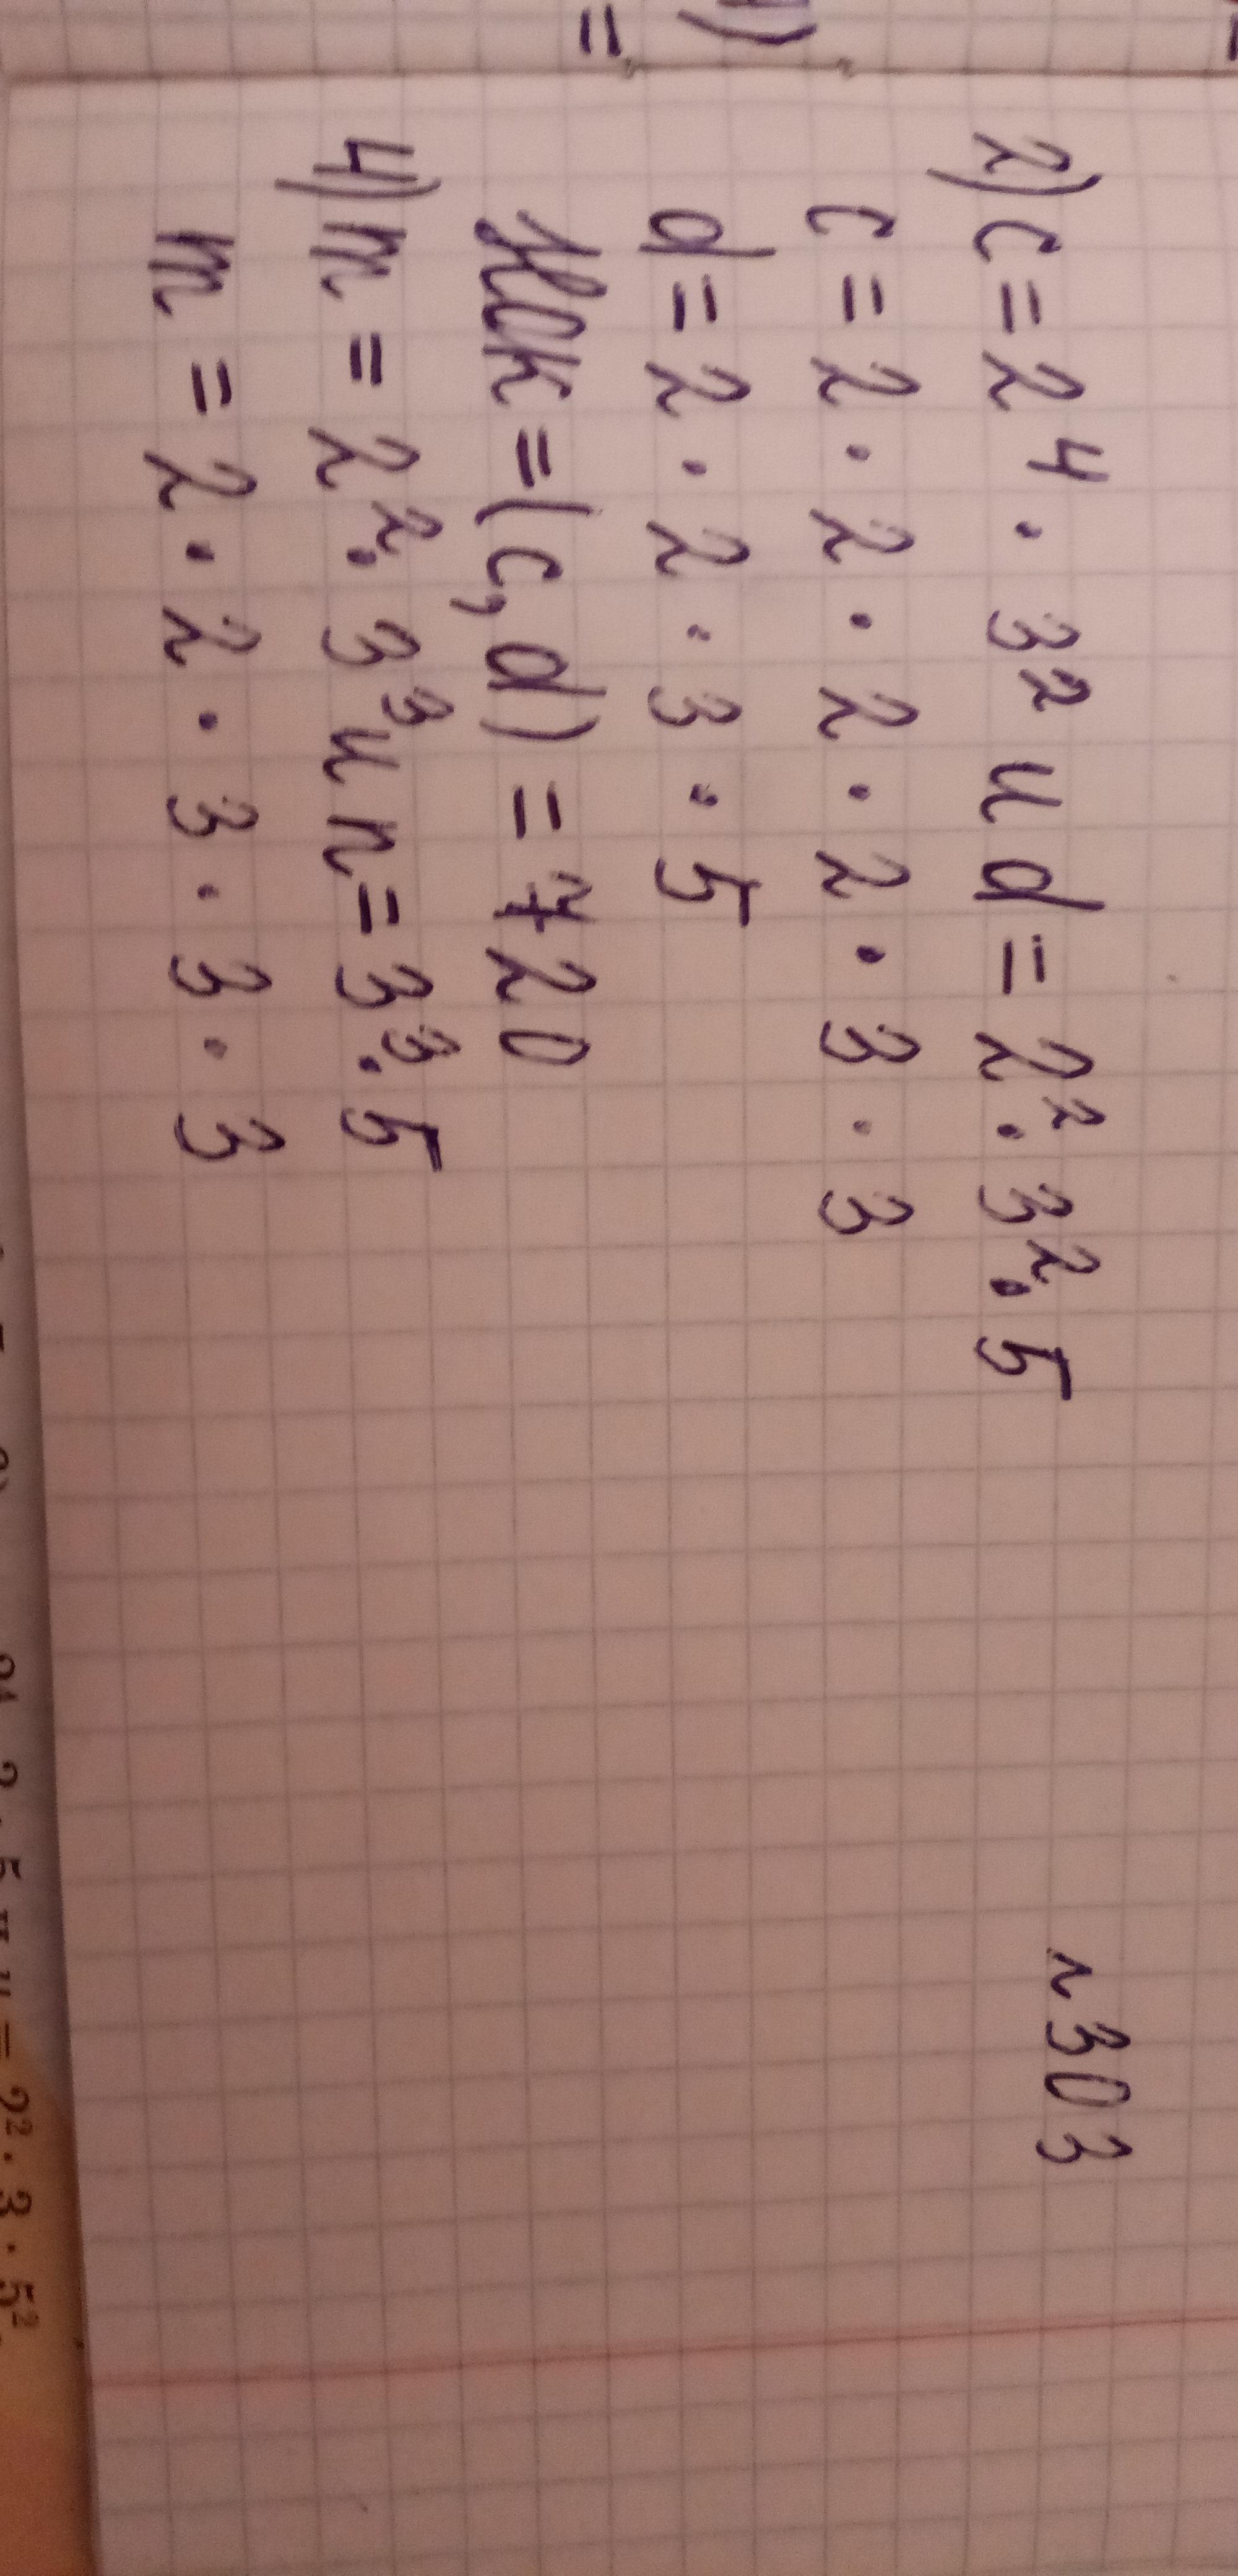 n303
2) c = 2⁴ · 3² и d = 2² · 3² · 5
c = 2 · 2 · 2 · 2 · 3 · 3
d = 2 · 2 · 3 · 5
НОК = (c, d) = 720
4) m = 2² · 3³ и n = 3³ · 5
m = 2 · 2 · 3 · 3 · 3
= 2² · 3 · 5²